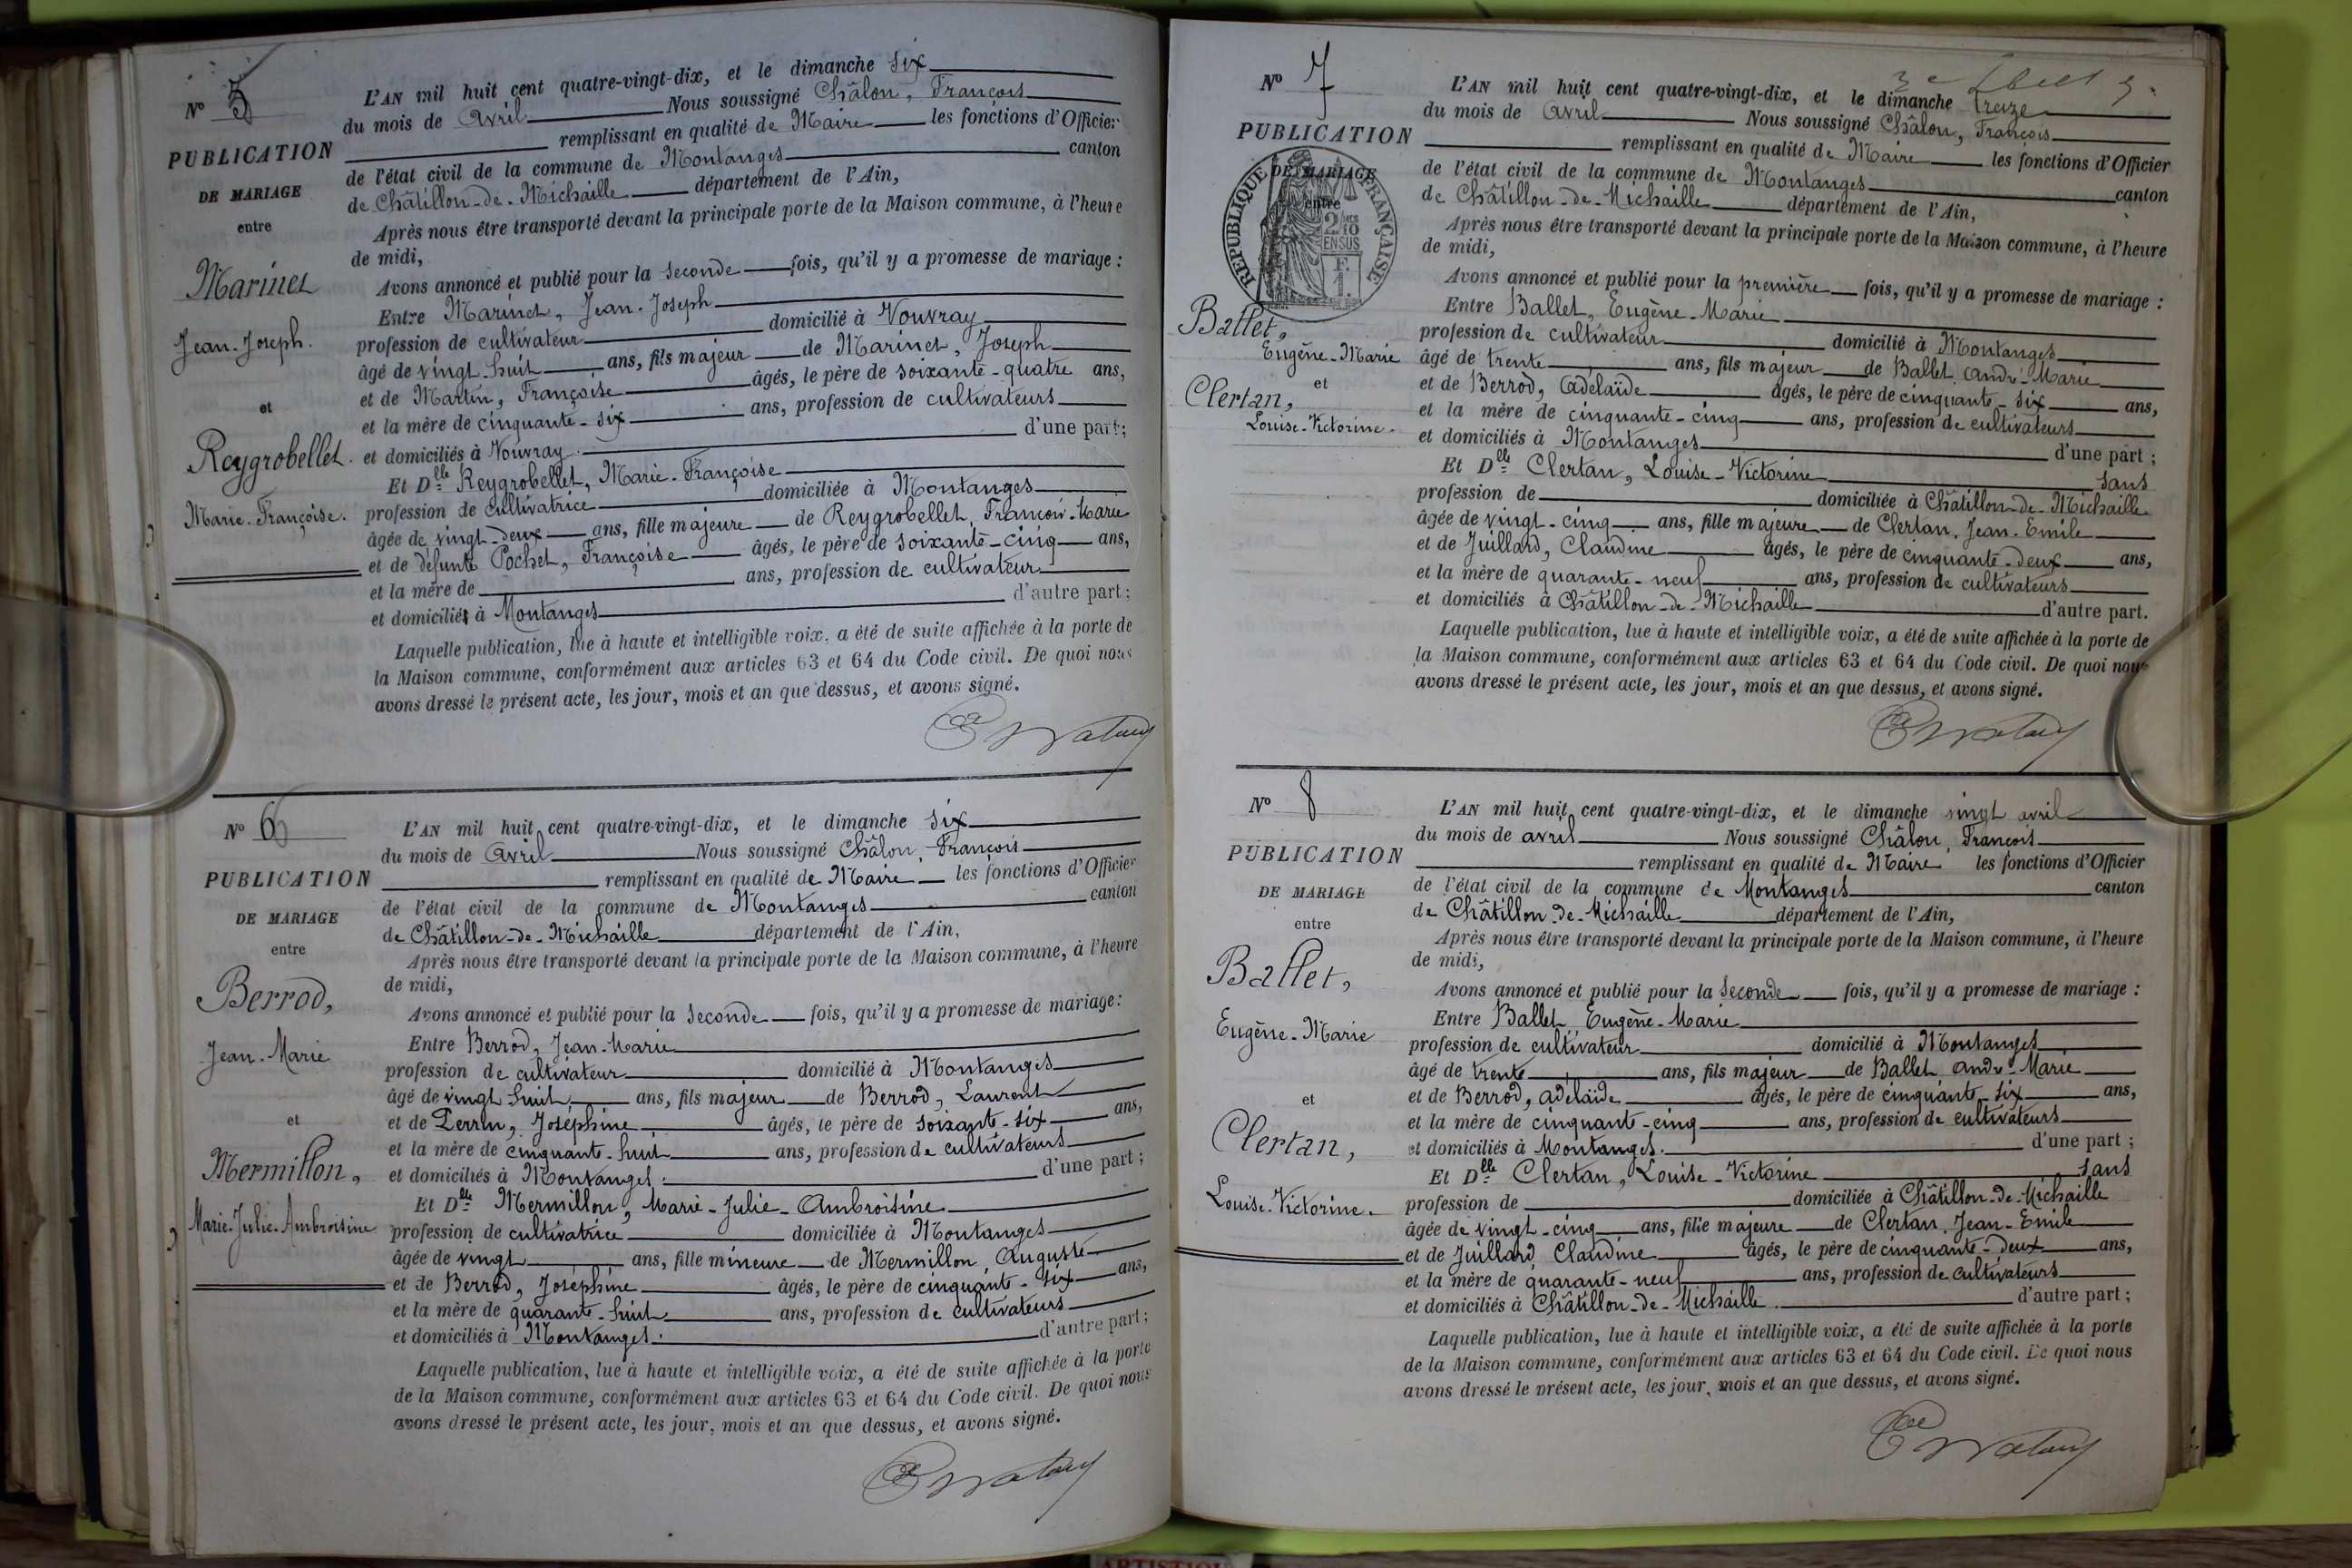 N° 5
PUBLICATION
DE MARIAGE
entre
Marinet
Jean-Joseph.
et
Reygrobellet.
Marie-Françoise.
L'AN mil huit cent quatre-vingt-dix, et le dimanche six
du mois de Avril Nous soussigné Châlon, François
remplissant en qualité de Maire les fonctions d'Officier
de l'état civil de la commune de Montanges canton
de Châtillon-de-Michaille département de l'Ain,
Après nous être transporté devant la principale porte de la Maison commune, à l'heure
de midi,
Avons annoncé et publié pour la seconde fois, qu'il y a promesse de mariage :
Entre Marinet, Jean-Joseph
profession de cultivateur domicilié à Vouvray
âgé de vingt-huit ans, fils majeur de Marinet, Joseph
et de Martin, Françoise âgés, le père de soixante-quatre ans,
et la mère de cinquante-six ans, profession de cultivateurs
et domiciliés à Vouvray. d'une part;
Et Dlle Reygrobellet, Marie-Françoise
profession de cultivatrice domiciliée à Montanges
âgée de vingt-deux ans, fille majeure de Reygrobellet, François-Marie
et de défunte Pochet, Françoise âgés, le père de soixante-cinq ans,
et la mère de ans, profession de cultivateur
et domiciliés à Montanges d'autre part;
Laquelle publication, lue à haute et intelligible voix, a été de suite affichée à la porte de
la Maison commune, conformément aux articles 63 et 64 du Code civil. De quoi nous
avons dressé le présent acte, les jour, mois et an que dessus, et avons signé.
N° 6
PUBLICATION
DE MARIAGE
entre
Berrod,
Jean-Marie
et
Mermillon,
Marie-Julie-Ambroisine
L'AN mil huit cent quatre-vingt-dix, et le dimanche six
du mois de Avril Nous soussigné Châlon, François
remplissant en qualité de Maire les fonctions d'Officier
de l'état civil de la commune de Montanges canton
de Châtillon-de-Michaille département de l'Ain,
Après nous être transporté devant la principale porte de la Maison commune, à l'heure
de midi,
Avons annoncé et publié pour la seconde fois, qu'il y a promesse de mariage:
Entre Berrod, Jean-Marie
profession de cultivateur domicilié à Montanges
âgé de vingt huit ans, fils majeur de Berrod, Laurent
et de Perrin, Joséphine âgés, le père de soixante-six ans,
et la mère de cinquante-huit ans, profession de cultivateurs
et domiciliés à Montanges. d'une part;
Et Dlle Mermillon, Marie-Julie-Ambroisine
profession de cultivatrice domiciliée à Montanges
âgée de vingt ans, fille mineure de Mermillon, Auguste
et de Berrod, Joséphine âgés, le père de cinquante-six ans,
et la mère de quarante-huit ans, profession de cultivateurs
et domiciliés à Montanges. d'autre part;
Laquelle publication, lue à haute et intelligible voix, a été de suite affichée à la porte
de la Maison commune, conformément aux articles 63 et 64 du Code civil. De quoi nous
avons dressé le présent acte, les jour, mois et an que dessus, et avons signé.
N° 7
PUBLICATION
DE MARIAGE
entre
RÉPUBLIQUE FRANÇAISE
2/10 EN SUS
Ballet,
Eugène-Marie
et
Clertan,
Louise-Victorine.
L'AN mil huit cent quatre-vingt-dix, et le dimanche treize
du mois de avril Nous soussigné Châlon, François
remplissant en qualité de Maire les fonctions d'Officier
de l'état civil de la commune de Montanges canton
de Châtillon-de-Michaille département de l'Ain,
Après nous être transporté devant la principale porte de la Maison commune, à l'heure
de midi,
Avons annoncé et publié pour la première fois, qu'il y a promesse de mariage :
Entre Ballet, Eugène-Marie
profession de cultivateur domicilié à Montanges
âgé de trente ans, fils majeur de Ballet, André-Marie
et de Berrod, Adelaïde âgés, le père de cinquante-six ans,
et la mère de cinquante-cinq ans, profession de cultivateurs
et domiciliés à Montanges d'une part ;
Et Dlle Clertan, Louise-Victorine sans
profession de domiciliée à Châtillon-de-Michaille
âgée de vingt-cinq ans, fille majeure de Clertan, Jean-Emile
et de Juillard, Claudine âgés, le père de cinquante-deux ans,
et la mère de quarante-neuf ans, profession de cultivateurs
et domiciliés à Châtillon-de-Michaille d'autre part.
Laquelle publication, lue à haute et intelligible voix, a été de suite affichée à la porte de
la Maison commune, conformément aux articles 63 et 64 du Code civil. De quoi nous
avons dressé le présent acte, les jour, mois et an que dessus, et avons signé.
N° 8
PUBLICATION
DE MARIAGE
entre
Ballet,
Eugène-Marie
et
Clertan,
Louise-Victorine.
L'AN mil huit cent quatre-vingt-dix, et le dimanche vingt avril
du mois de avril Nous soussigné Châlon, François
remplissant en qualité de Maire les fonctions d'Officier
de l'état civil de la commune de Montanges canton
de Châtillon-de-Michaille département de l'Ain,
Après nous être transporté devant la principale porte de la Maison commune, à l'heure
de midi,
Avons annoncé et publié pour la seconde fois, qu'il y a promesse de mariage :
Entre Ballet, Eugène-Marie
profession de cultivateur domicilié à Montanges
âgé de trente ans, fils majeur de Ballet, André-Marie
et de Berrod, adelaïde âgés, le père de cinquante-six ans,
et la mère de cinquante-cinq ans, profession de cultivateurs
et domiciliés à Montanges. d'une part ;
Et Dlle Clertan, Louise-Victorine sans
profession de domiciliée à Châtillon-de-Michaille
âgée de vingt-cinq ans, fille majeure de Clertan, Jean-Emile
et de Juillard Claudine âgés, le père de cinquante-deux ans,
et la mère de quarante-neuf ans, profession de cultivateurs
et domiciliés à Châtillon-de-Michaille. d'autre part ;
Laquelle publication, lue à haute et intelligible voix, a été de suite affichée à la porte
de la Maison commune, conformément aux articles 63 et 64 du Code civil. De quoi nous
avons dressé le présent acte, les jour, mois et an que dessus, et avons signé.